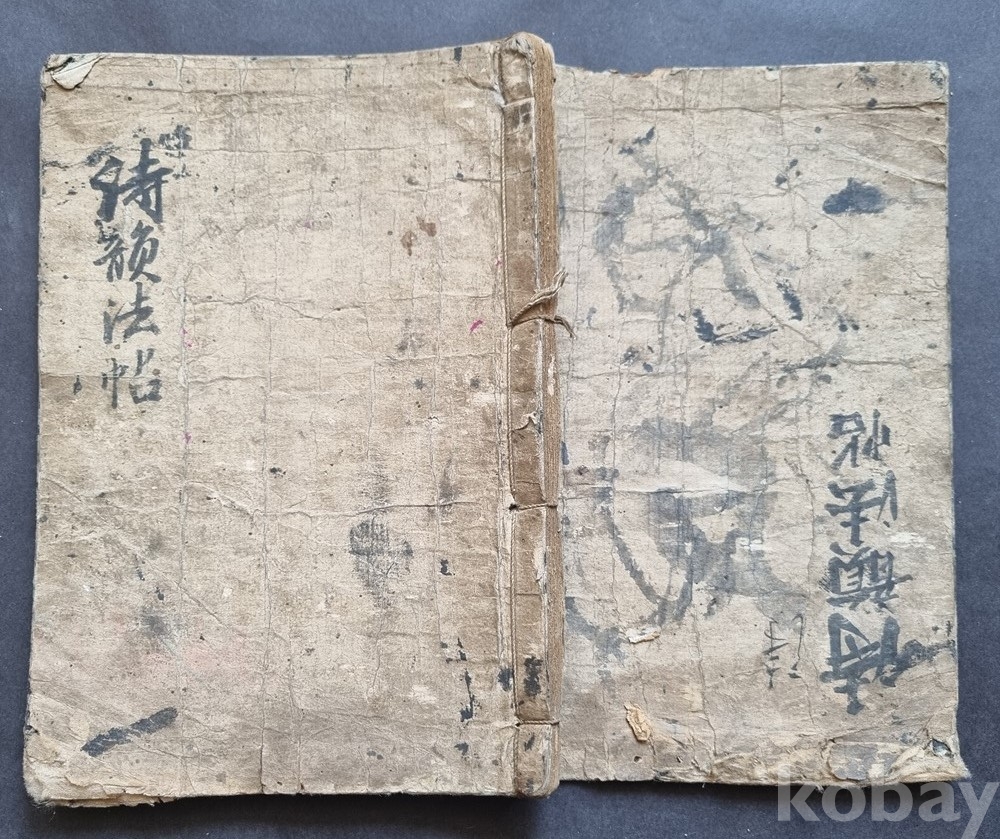 詩韻法帖
詩韻法帖
kobay